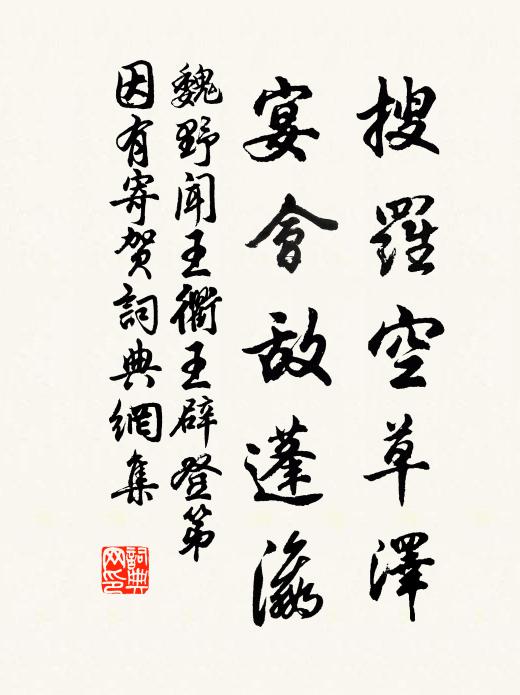 搜羅空草澤
宴會敌蓬瀛
魏野闻王衢王辟登第
因有寄贺詞典網集
詞典
网印